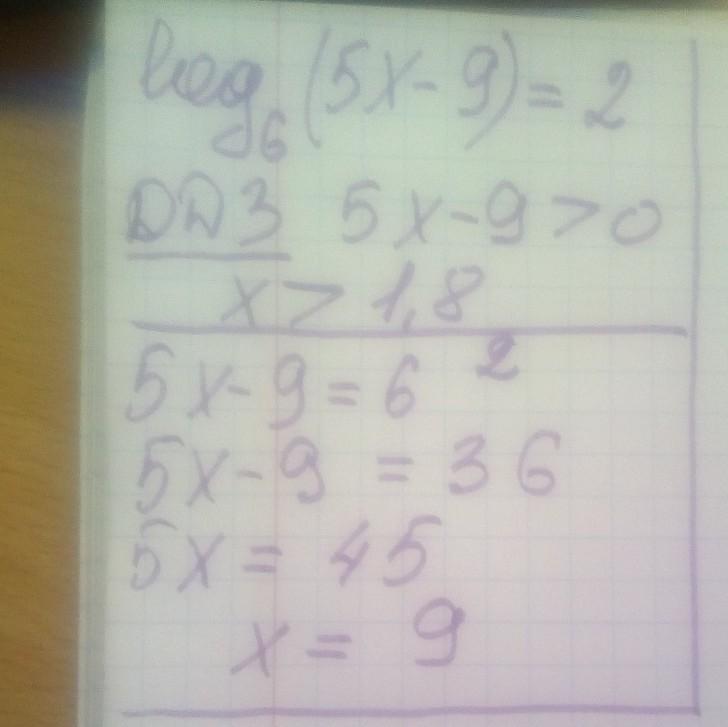 log₆(5x-9)=2
ОДЗ 5x-9>0
x>1,8
5x-9=6²
5x-9=36
5x=45
x=9